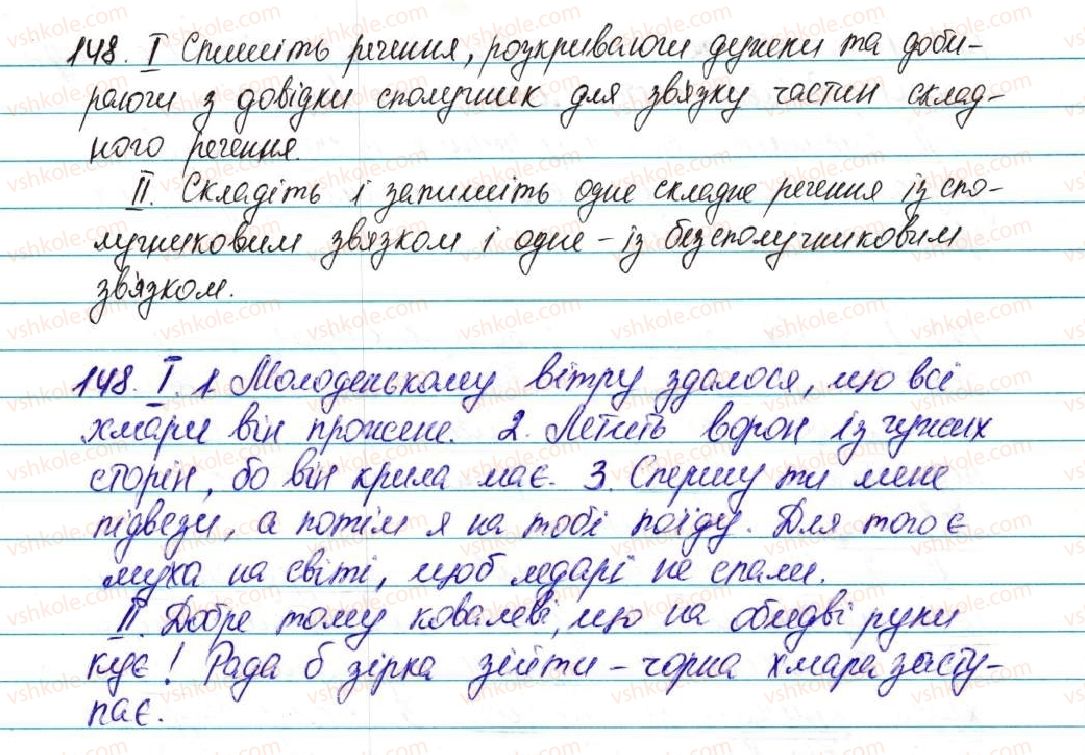 148. І Спишіть речення, розкриваючи дужки та доби-
раючи з довідки сполучник для зв'язку частин склад-
ного речення.
ІІ. Складіть і запишіть одне складне речення із спо-
лучниковим звязком і одне – із безсполучниковим
зв'язком.
148. І. 1 Молоденькому вітру здалося, що всі
хмари він прожене. 2. Летить ворон із чужих
сторін, бо він крила має. 3. Спершу ти мене
підвези, а потім я на тобі поїду. Для того є
муха на світі, щоб ледарі не спали.
ІІ. Добре тому ковалеві, що на обидві руки
кує! Рада б зірка зійти – чорна хмара засту-
пає.